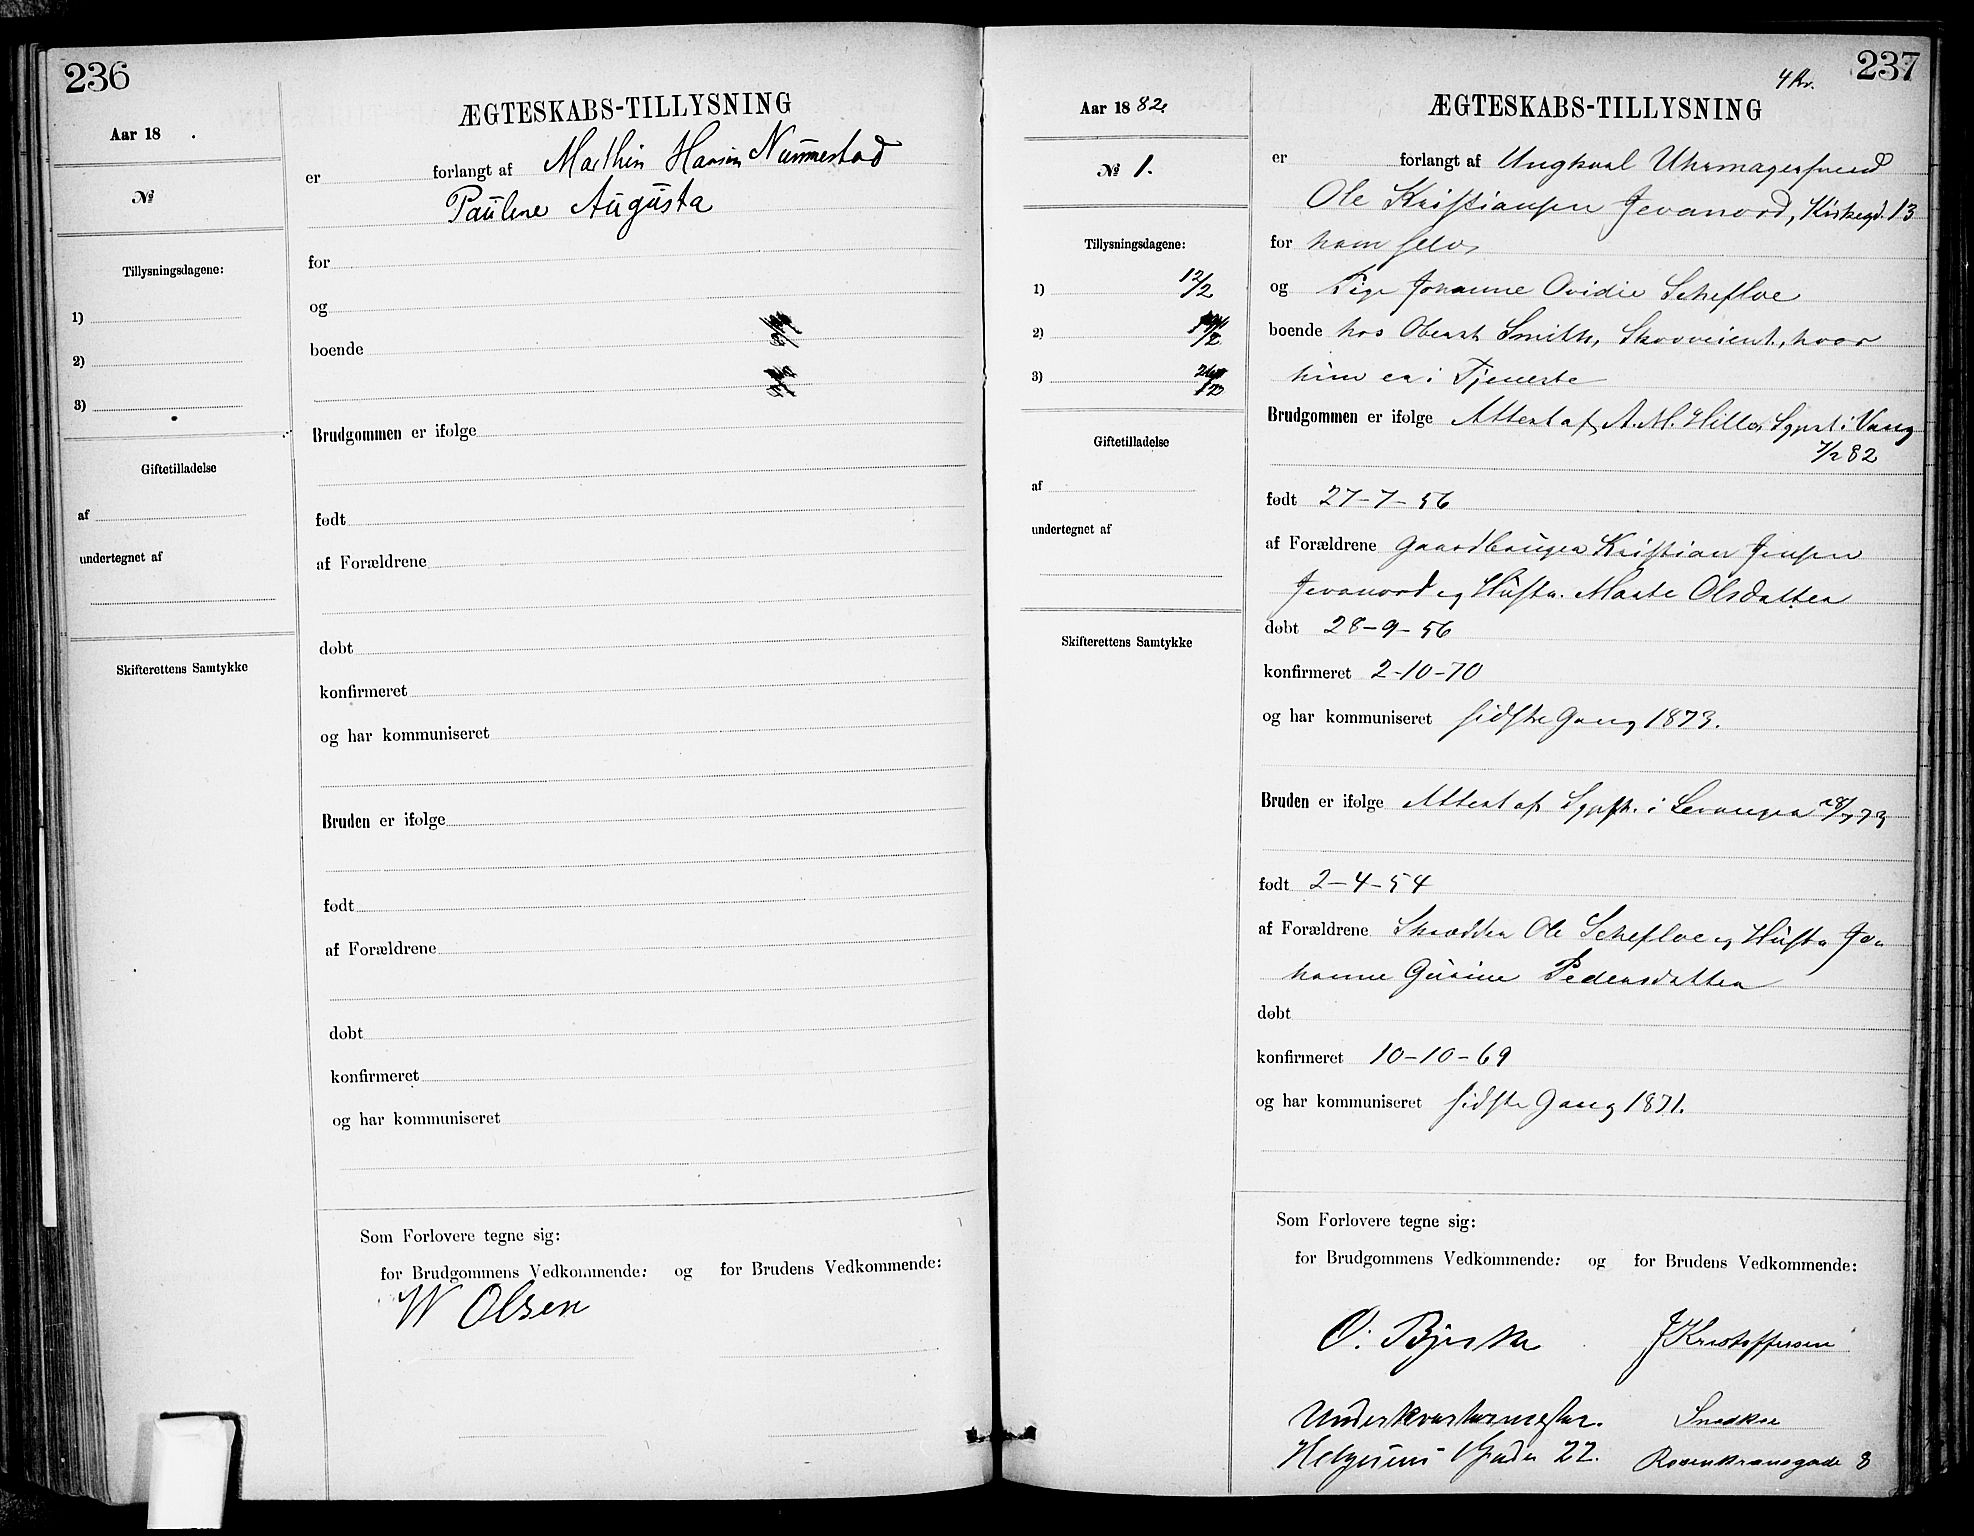 236
Aar 18 .
№
Tillysningsdagene:
1)
2)
3)
Giftetilladelse
af
undertegnet af
Skifterettens Samtykke
ÆGTESKABS-TILLYSNING
er forlangt af Marthin Hansen Nummestad
Pauline Augusta
for
og
boende
Brudgommen er ifølge
født
af Forældrene
døbt
konfirmeret
og har kommuniseret
Bruden er ifølge
født
af Forældrene
døbt
konfirmeret
og har kommuniseret
Som Forlovere tegne sig:
for Brudgommens Vedkommende: og for Brudens Vedkommende:
W Olsen
237
4 Kr.
Aar 1882.
№ 1.
Tillysningsdagene:
1) 12/2
2)
3)
Giftetilladelse
af
undertegnet af
Skifterettens Samtykke
ÆGTESKABS-TILLYSNING
er forlangt af Ungkarl Uhrmagersvend
Ole Kristiansen Jevanord, Kirkegd. 13
for ham selv
og Pige Johanne Ovidie Schefloe
boende hos Oberst Smith, Skovveien, hvor
hun er i Tjeneste
Brudgommen er ifølge Attest af A. M. Hille, Sgpst i Vang
7/2 82
født 27-7-56
af Forældrene Gaardbruger Kristian Jensen
Jevanord og Hustr. Marte Olsdatter
døbt 28-9-56
konfirmeret 2-10-70
og har kommuniseret sidste Gang 1873.
Bruden er ifølge Attest af Sgpst. i Levanger 28/7 73
født 2-4-54
af Forældrene Skrædder Ole Schefloe og Hustr Jo-
hanne Gurine Pedersdatter
døbt
konfirmeret 10-10-69
og har kommuniseret sidste Gang 1871.
Som Forlovere tegne sig:
for Brudgommens Vedkommende: og for Brudens Vedkommende:
O. Bjerke J Kristoffersen
Underkvartermester. Snedker
Helgesens Gade 22. Rosenkransgade 8